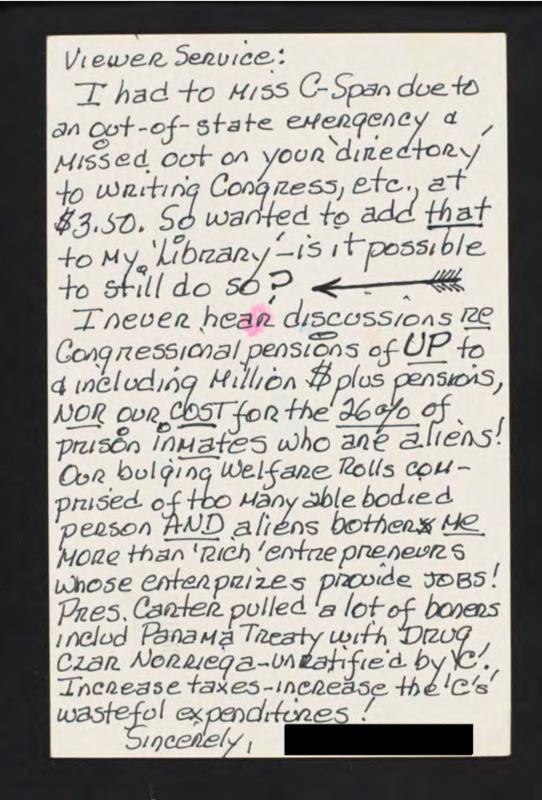 Viewer Service:
I had to miss C-Span due to
an out-of-state emergency &
missed out on your 'directory'
to writing Congress, etc., at
$3.50. So wanted to add that
to my 'Library' – is it possible
to still do so?
I never hear discussions re
Congressional pensions of UP to
& including Million $ plus pensions,
NOR our COST for the 26% of
prison inmates who are aliens!
Our bulging Welfare Rolls com-
prised of too many able bodied
person AND aliens bothers me
more than 'rich' entrepreneurs
whose enterprizes provide JOBS!
Pres. Carter pulled a lot of boners
includ Panama Treaty with Drug
Czar Norriega-unratified by 'C'!
Increase taxes-increase the 'C's'
wasteful expenditures!
Sincerely,